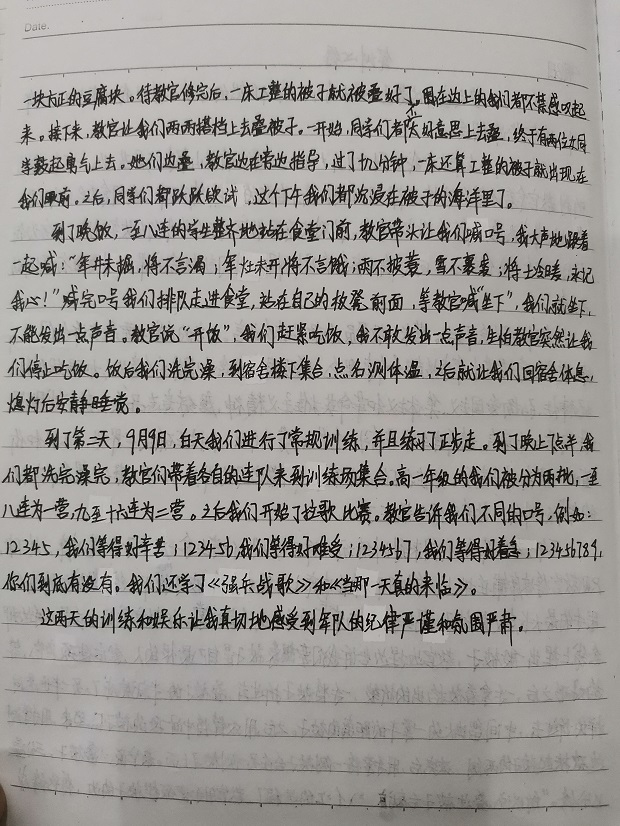 Date.
一块方正的豆腐块。待教官修完后,一床工整的被子就被叠好了。围在边上的我们都不禁感叹起
来。接下来,教官让我们两两搭档上去叠被子。一开始,同学们都不好意思上去叠,终于有两位女同
学鼓起勇气上去。她们边叠,教官边在旁边指导,过了十几分钟,一床还算工整的被子就出现在
我们眼前。之后,同学们都跃跃欲试,这个下午我们都沉浸在被子的海洋里了。
到了晚饭,一至八连的学生整齐地站在食堂门前,教官带头让我们喊口号,我大声地跟着
一起喊:“军井未掘,将不言渴;军灶未开,将不言饿;雨不披蓑,雪不裹裘;将士冷暖,永记
我心!”喊完口号我们排队走进食堂,站在自己的板凳前面,等教官喊“坐下”,我们就坐下,
不能发出一点声音。教官说“开饭”,我们赶紧吃饭,我不敢发出一点声音,生怕教官突然让我
们停止吃饭。饭后我们洗完澡,到宿舍楼下集合,点名测体温,之后就让我们回宿舍休息,
熄灯后安静睡觉。
到了第二天,9月9日,白天我们进行了常规训练,并且练习了正步走。到了晚上7点半,我
们都洗完澡完,教官们带着各自的连队来到训练场集合。高一年级的我们被分为两批,一至
八连为一营,九至十六连为二营。之后我们开始了拉歌比赛。教官告诉我们不同的口号,例如:
12345,我们等得好辛苦;123456,我们等得好难受;1234567,我们等得好着急;123456789,
你们到底有没有。我们还学了《强兵战歌》和《当那一天真的来临》。
这两天的训练和娱乐让我真切地感受到军队的纪律严谨和氛围严肃。